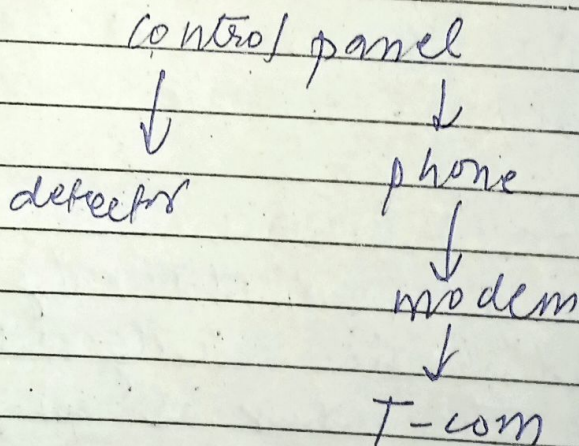 control panel
detector phone
modem
T-com